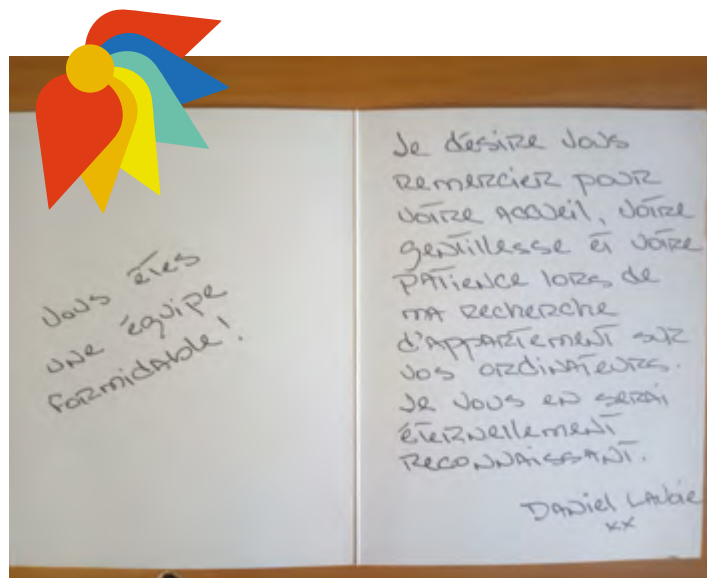 Vous êtes
une équipe
formidable!
Je désire vous
remercier pour
votre accueil, votre
gentillesse et votre
patience lors de
ma recherche
d'appartement sur
vos ordinateurs.
Je vous en serai
éternellement
reconnaissant.
Daniel Lavoie
xx